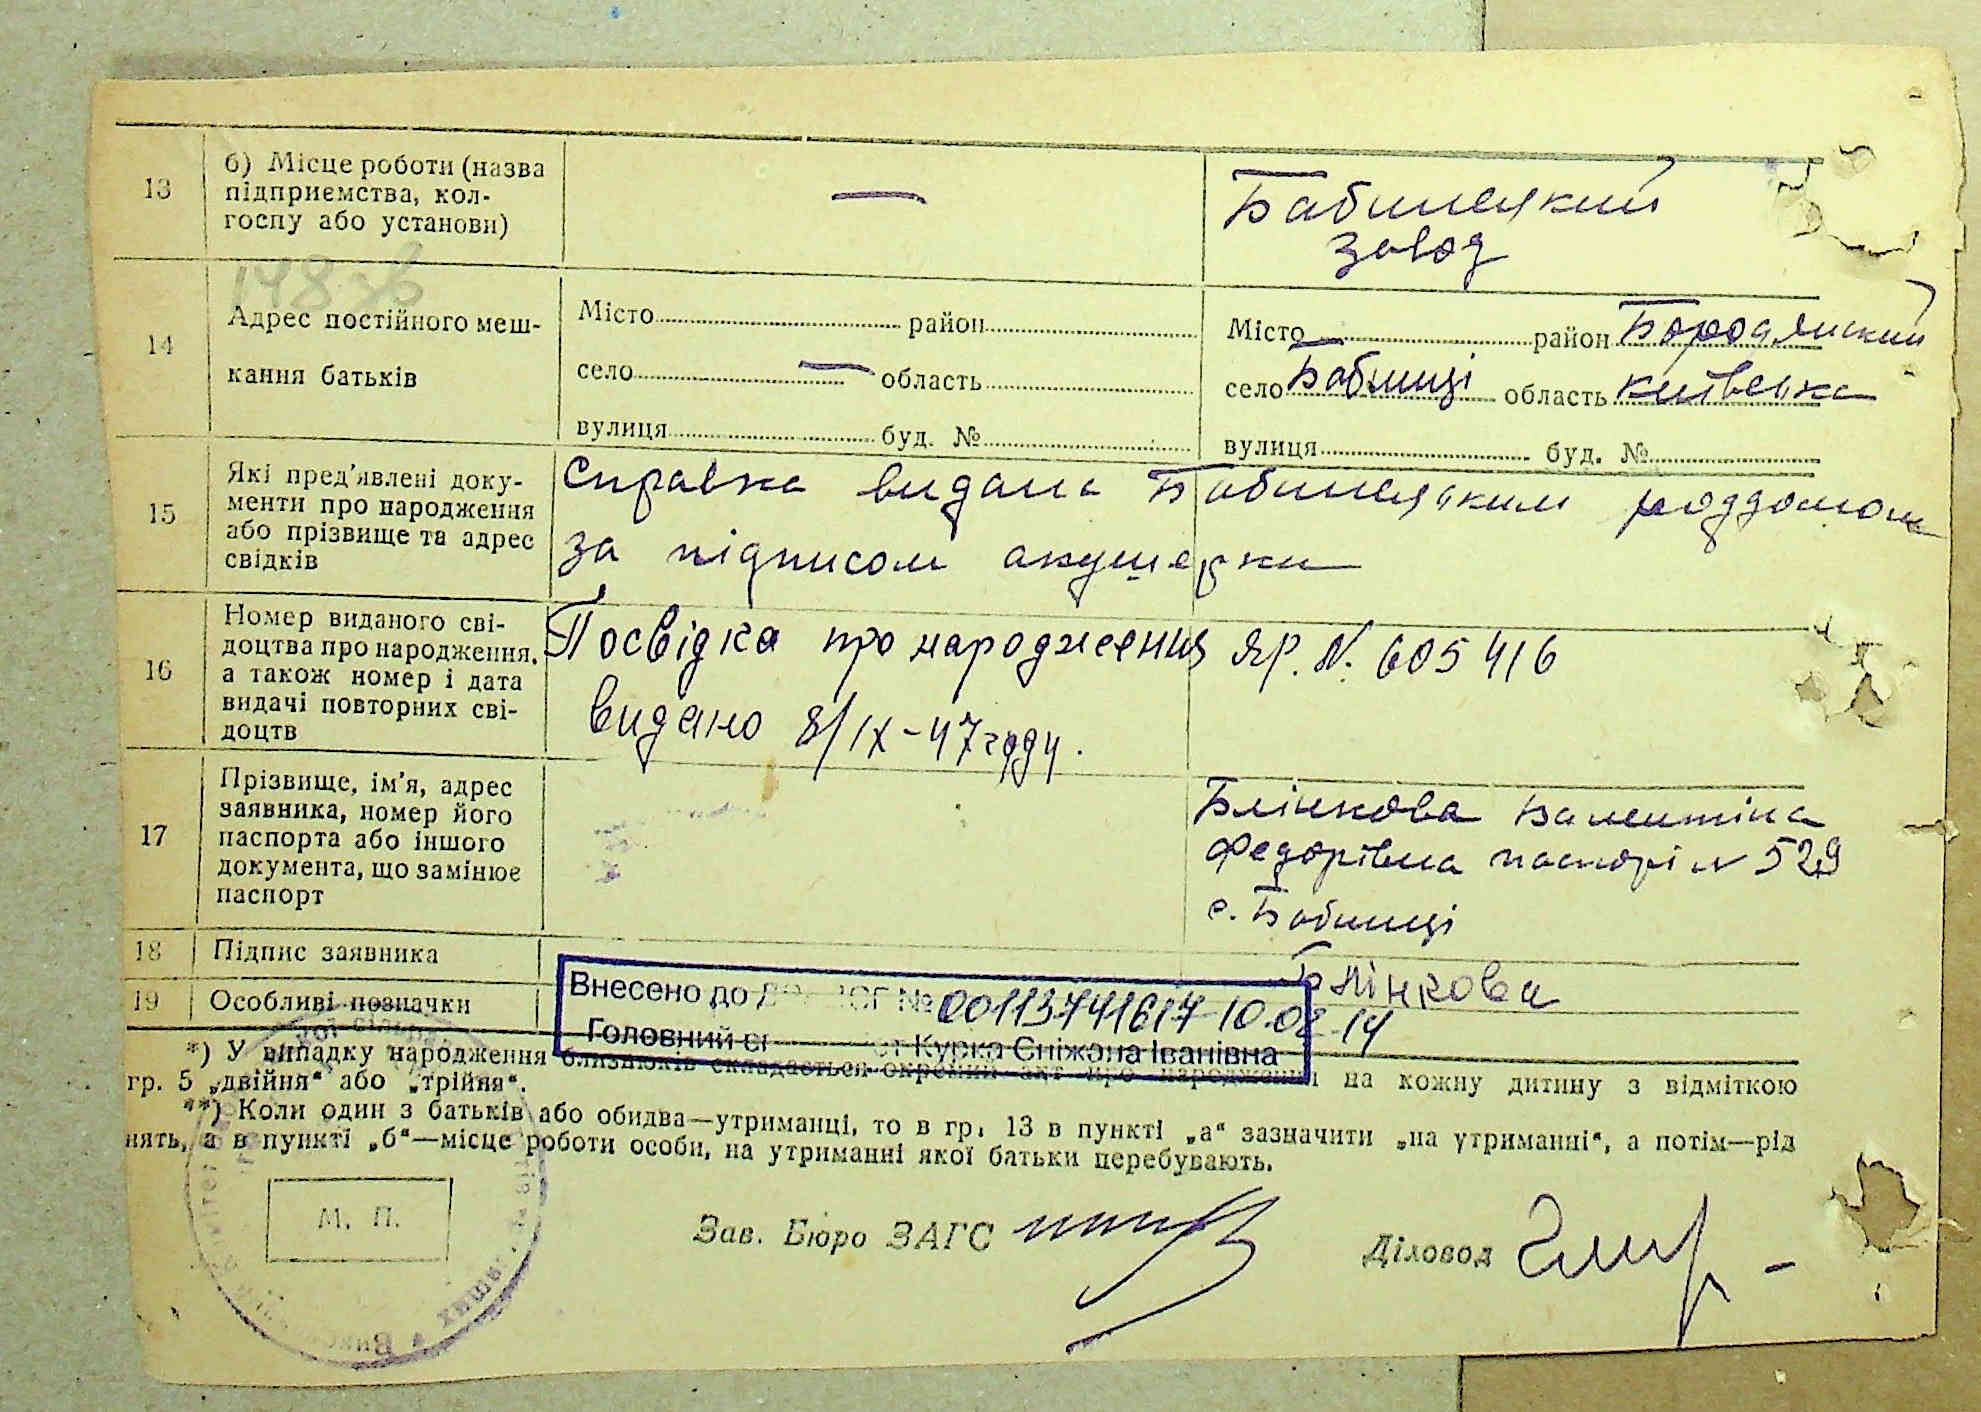 13
б) Місце роботи (назва
підприємства, кол-
госпу або установи)
—
Бабинецкий
завод
14
Адрес постійного меш-
кання батьків
Місто район
село — область
вулиця буд. №
Місто — район Бородянский
село Бабинці область київська
вулиця буд. №
15
Які пред'явлені доку-
менти про народження
або прізвище та адрес
свідків
Справка видана Бабинецьким роддомом
за підписом акушерки
16
Номер виданого сві-
доцтва про народження,
а також номер і дата
видачі повторних сві-
доцтв
Посвідка про народження ЯР. N. 605416
видано 8/IX-47 году.
17
Прізвище, ім'я, адрес
заявника, номер його
паспорта або іншого
документа, що замінює
паспорт
Блінкова Валентіна
Федорівна паспорт N 529
с. Бабинці
18
Підпис заявника
Блінкова
19
Особливі позначки
Внесено до № 00113741617 10.02.14
Головний Курка Сніжана Іванівна
*) У випадку народження близнюків складається окремий акт про народження на кожну дитину з відміткою
гр. 5 „двійня“ або „трійня“.
**) Коли один з батьків або обидва—утриманці, то в гр. 13 в пункті „а“ зазначити „на утриманні“, а потім—рід
нять, а в пункті „б“—місце роботи особи, на утриманні якої батьки перебувають.
М. П.
Зав. Бюро ЗАГС
Діловод